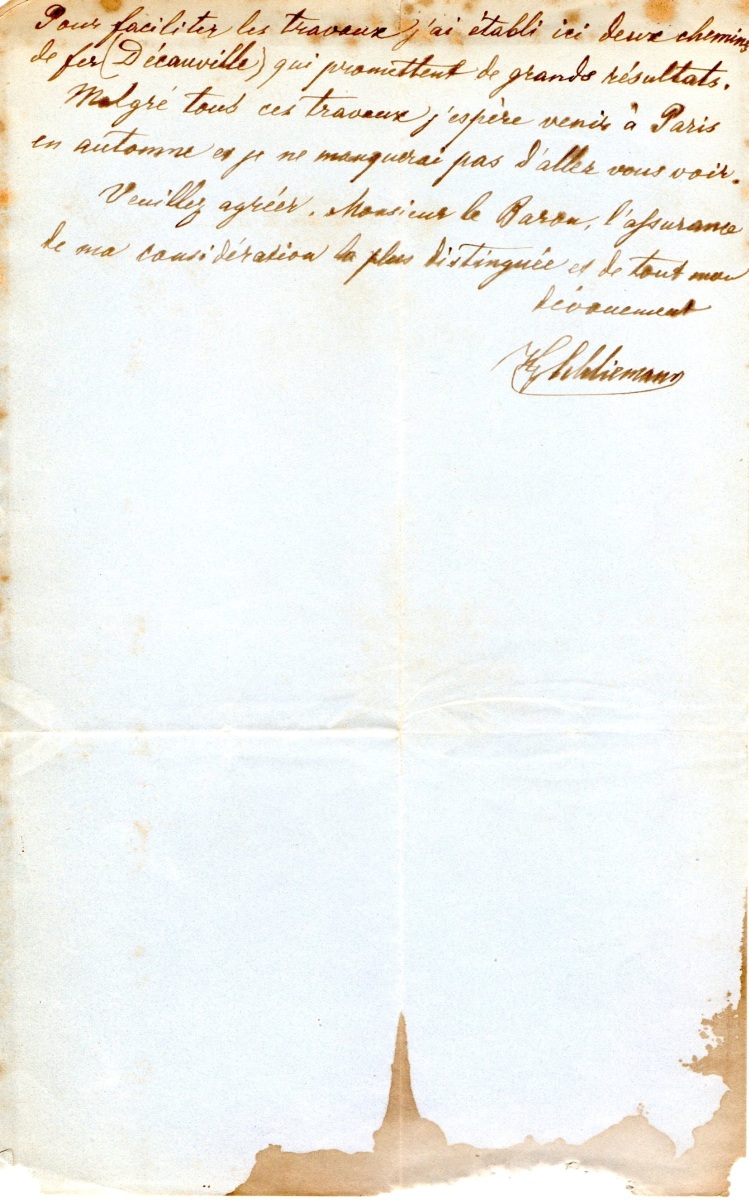 Pour faciliter les travaux j'ai établi ici deux chemins
de fer (Décauville) qui promettent de grands résultats.
Malgré tous ces travaux j'espère venir à Paris
en automne et je ne manquerai pas d'aller vous voir.
Veuillez agréer, Monsieur le Baron, l'assurance
de ma considération la plus distinguée et de tout mon
dévouement
Hy Schliemann